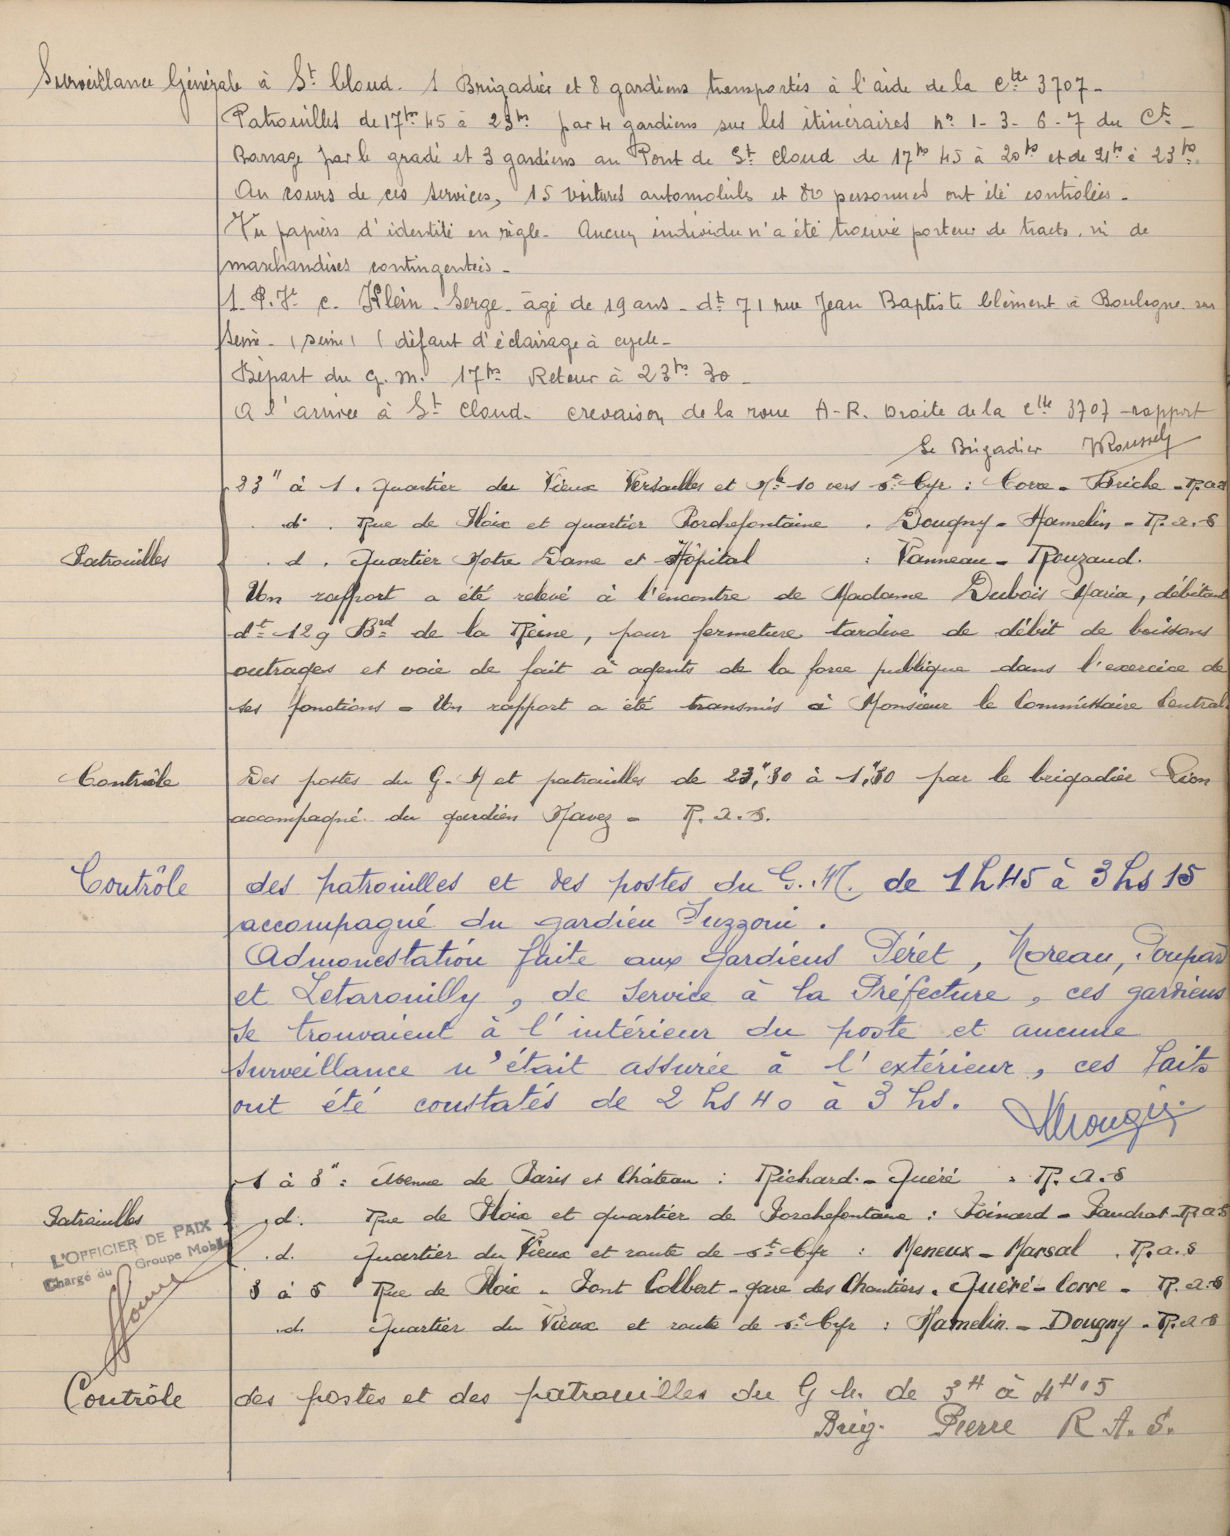 Surveillance Générale à St Cloud. 1 Brigadier et 8 gardiens transportés à l'aide de la Cte 3707 -
Patrouilles de 17hs 45 à 23hs par 4 gardiens sur les itinéraires ns 1 - 3 - 6 - 7 du Ct -
Barrage par le gradé et 3 gardiens au Pont de St Cloud de 17hs 45 à 20hs et de 21hs à 23hs.
Au cours de ces services, 15 voitures automobiles et 80 personnes ont été contrôlées -
Vu papiers d'identité en règle - Aucun individu n'a été trouvé porteur de tracts, ni de
marchandises contingentées -
1 P. Vt c. Klein - Serge - âgé de 19 ans - dt 71 rue Jean Baptiste Clément à Boulogne sur
Seine - (Seine) (défaut d'éclairage à cycle -
Départ du G. M. 17hs Retour à 23hs 30 -
A l'arrivée à St Cloud - crevaison de la roue A-R. Droite de la Cte 3707 - rapport
Le Brigadier Roussely
23" à 1 . Quartier du Vieux Versailles et Nle 10 vers St Cyr : Corre - Friche - R.a.s
. d° . Rue de Noix et quartier Porchefontaine . Dougny - Hamelin - R. a. s
Patrouilles . d . Quartier Notre Dame et Hôpital : Vanneau - Rouzaud.
Un rapport a été relevé à l'encontre de Madame Dubois Maria, débitant
dt 129 Brd de la Reine, pour fermeture tardive de débit de boissons
outrages et voie de fait à agents de la force publique dans l'exercice de
ses fonctions - Un rapport a été transmis à Monsieur le Commissaire Central.
Contrôle Des postes du G. M et patrouilles de 23"30 à 1"30 par le brigadier Lion
accompagné du gardien Navez - R. a. s.
Contrôle des patrouilles et des postes du G. M. de 1 h 45 à 3 hs 15
accompagné du gardien Fuzzoni .
Admonestation faite aux gardiens Péret, Moreau, Poupar
et Letarouilly, de service à la Préfecture, ces gardiens
se trouvaient à l'intérieur du poste et aucune
surveillance n'était assurée à l'extérieur, ces faits
ont été constatés de 2 hs 40 à 3 hs.
1 à 3" : Avenue de Paris et Château : Richard - Quéré . R. a. s
Patrouilles . d. Rue de Noix et quartier de Porchefontaine : Poinard - Paudrat - R a s
. d. Quartier du Vieux et route de St Cyr : Meneux - Marsal . R. a. s
L'OFFICIER DE PAIX
Chargé du Groupe Mobile
3 à 5 Rue de Noix - Pont Colbert - gare des Chantiers . Quéré - Corre - R. a. s
. d. Quartier du Vieux et route de St Cyr : Hamelin - Dougny - R. a s
Contrôle des postes et des patrouilles du G M. de 3H à 4H15
Brig. Pierre R. A. S.